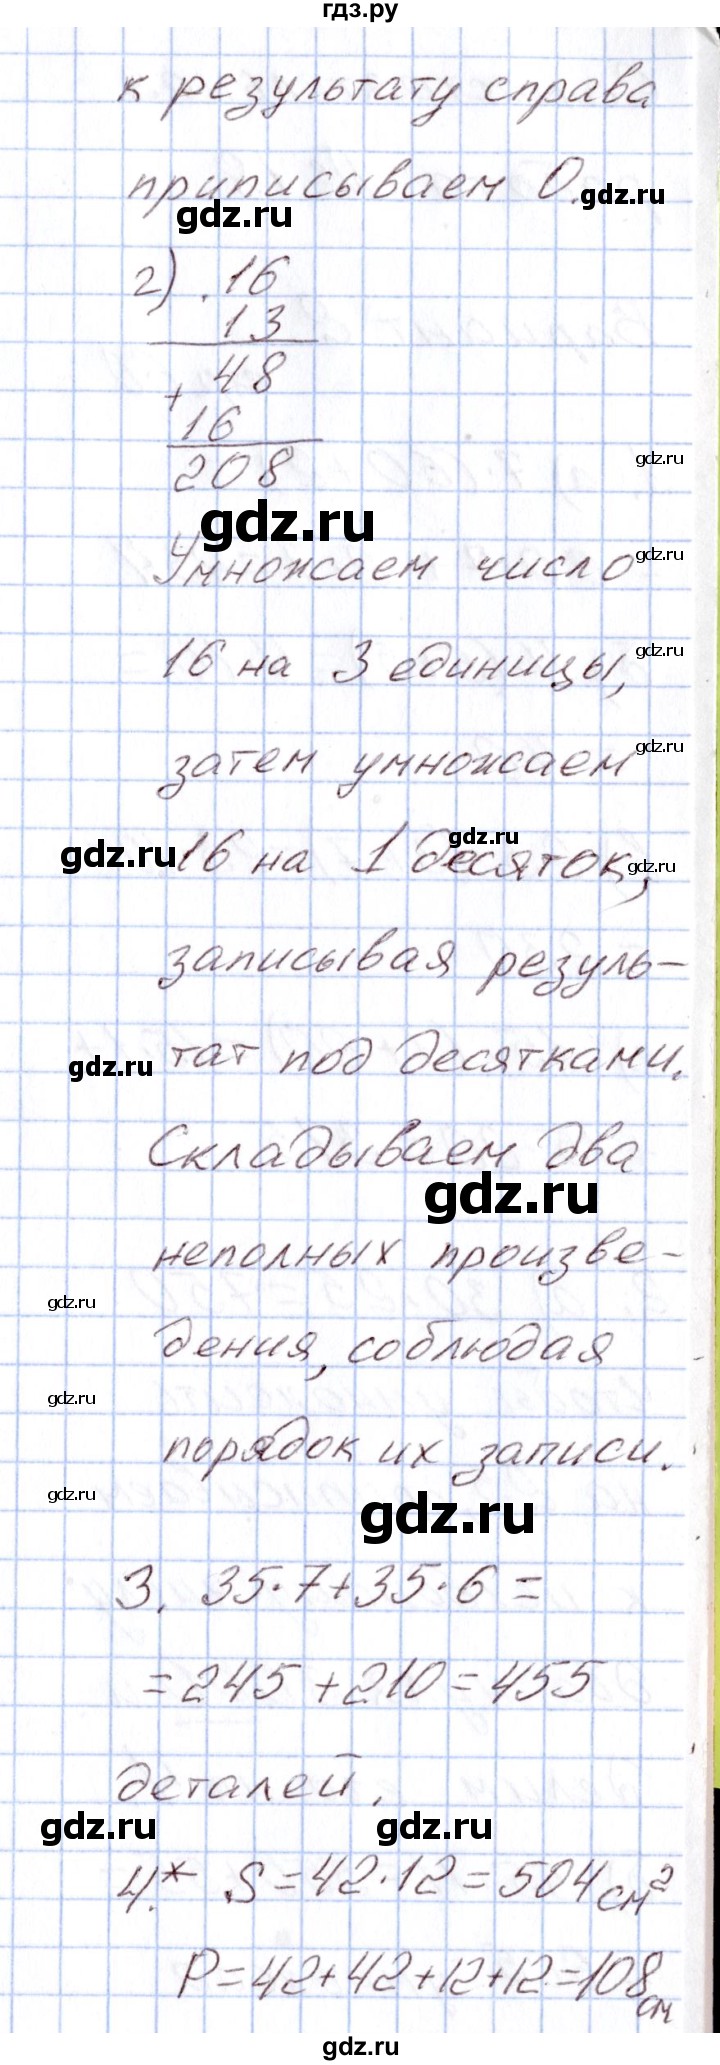 гдз.ру
к результату справа
приписываем 0.
gdz.ru
gdz.ru
г) . 16
13
48
+
16
208
gdz.ru
gdz.ru
Умножаем число
gdz.ru
16 на 3 единицы,
gdz.ru
затем умножаем
gdz.ru
gdz.ru
gdz.ru
16 на 1 десяток,
gdz.ru
записывая резуль-
тат под десятками.
gdz.ru
Складываем два
gdz.ru
неполных произве-
gdz.ru
дения, соблюдая
gdz.ru
порядок их записи.
gdz.ru
gdz.ru
3. 35·7+35·6=
=245+210=455
деталей.
gdz.ru
gdz.ru
4.* S=42·12=504 см²
P=42+42+12+12=108 см
gdz.ru